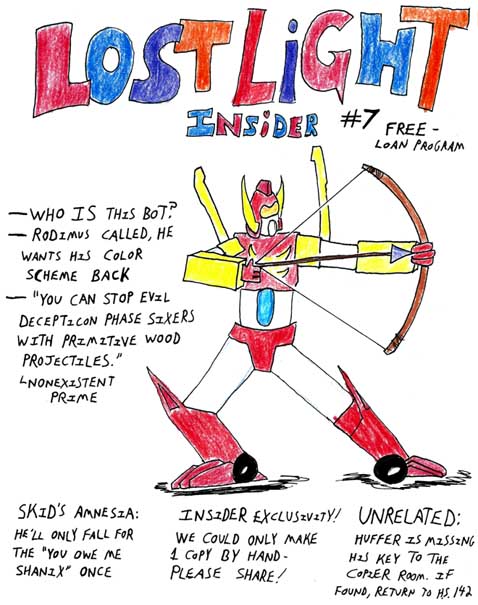 LOST LiGHT
INSiDER
#7 FREE -
LOAN PROGRAM
— WHO IS THIS BOT?
— RODIMUS CALLED, HE
WANTS HIS COLOR
SCHEME BACK
— "YOU CAN STOP EVIL
DECEPTICON PHASE SIXERS
WITH PRIMITIVE WOOD
PROJECTILES."
NONEXISTENT
PRIME
SKID'S AMNESIA:
HE'LL ONLY FALL FOR
THE "YOU OWE ME
SHANIX" ONCE
INSIDER EXCLUSIVITY!
WE COULD ONLY MAKE
1 COPY BY HAND-
PLEASE SHARE!
UNRELATED:
HUFFER IS MISSING
HIS KEY TO THE
COPIER ROOM. IF
FOUND, RETURN TO HS. 142